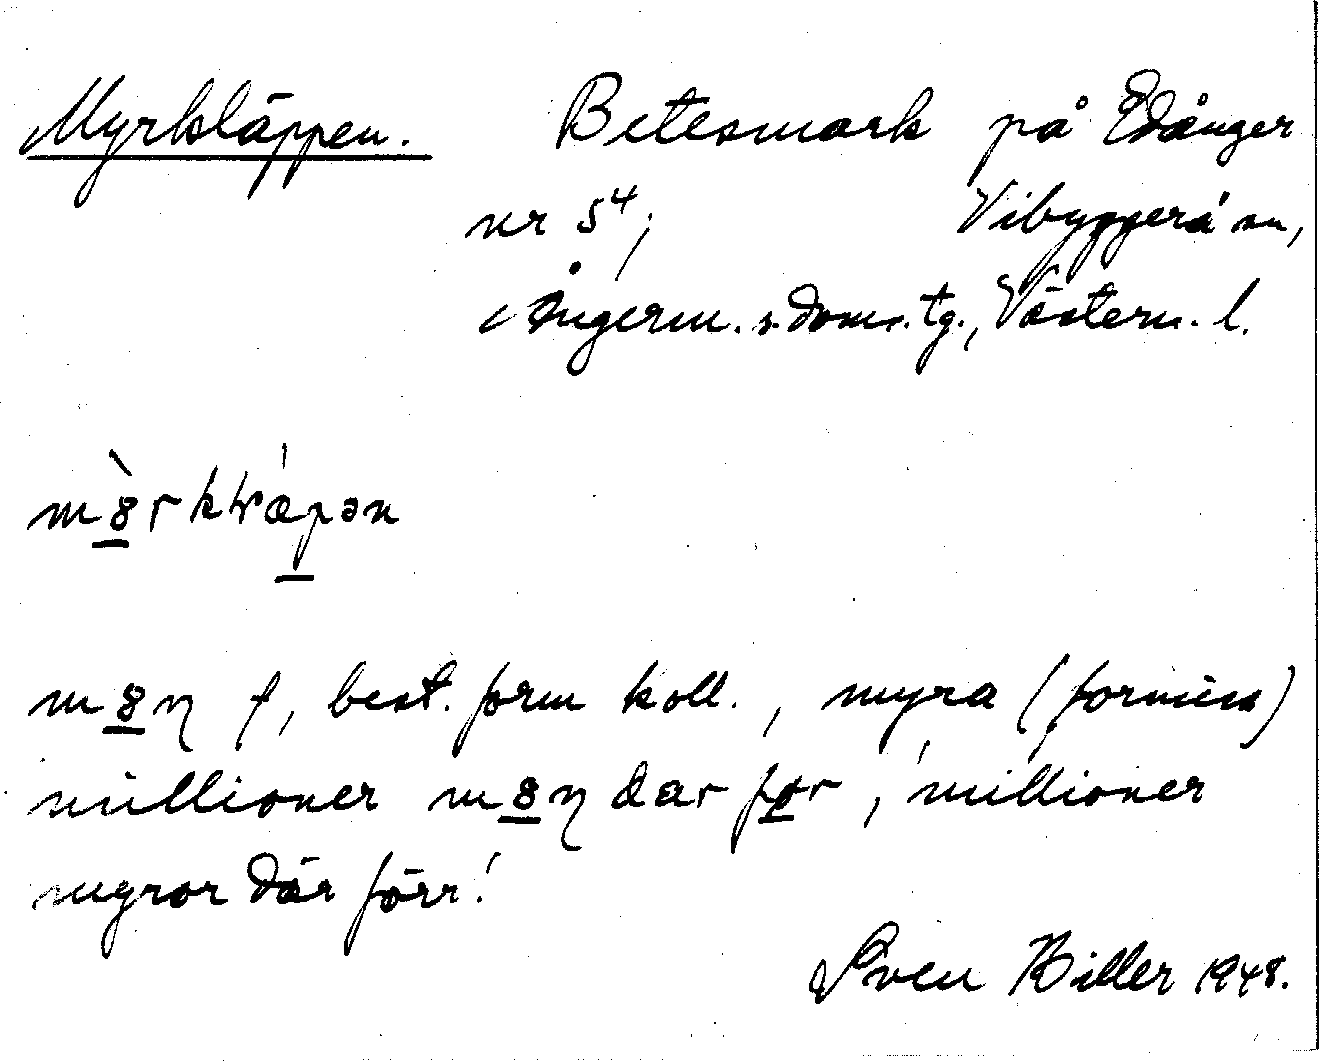 Myrkläppen. Betesmark på Edånger
nr 5⁴; Vibyggerå sn,
Ångerm. s. doms. tg., Västern. l.
m8̲rkwæp̲ən
m8̲η f, best. form koll., myra (formica)
millioner m8̲η dar før, 'millioner
myror där förr'
Sven Hiller 1948.